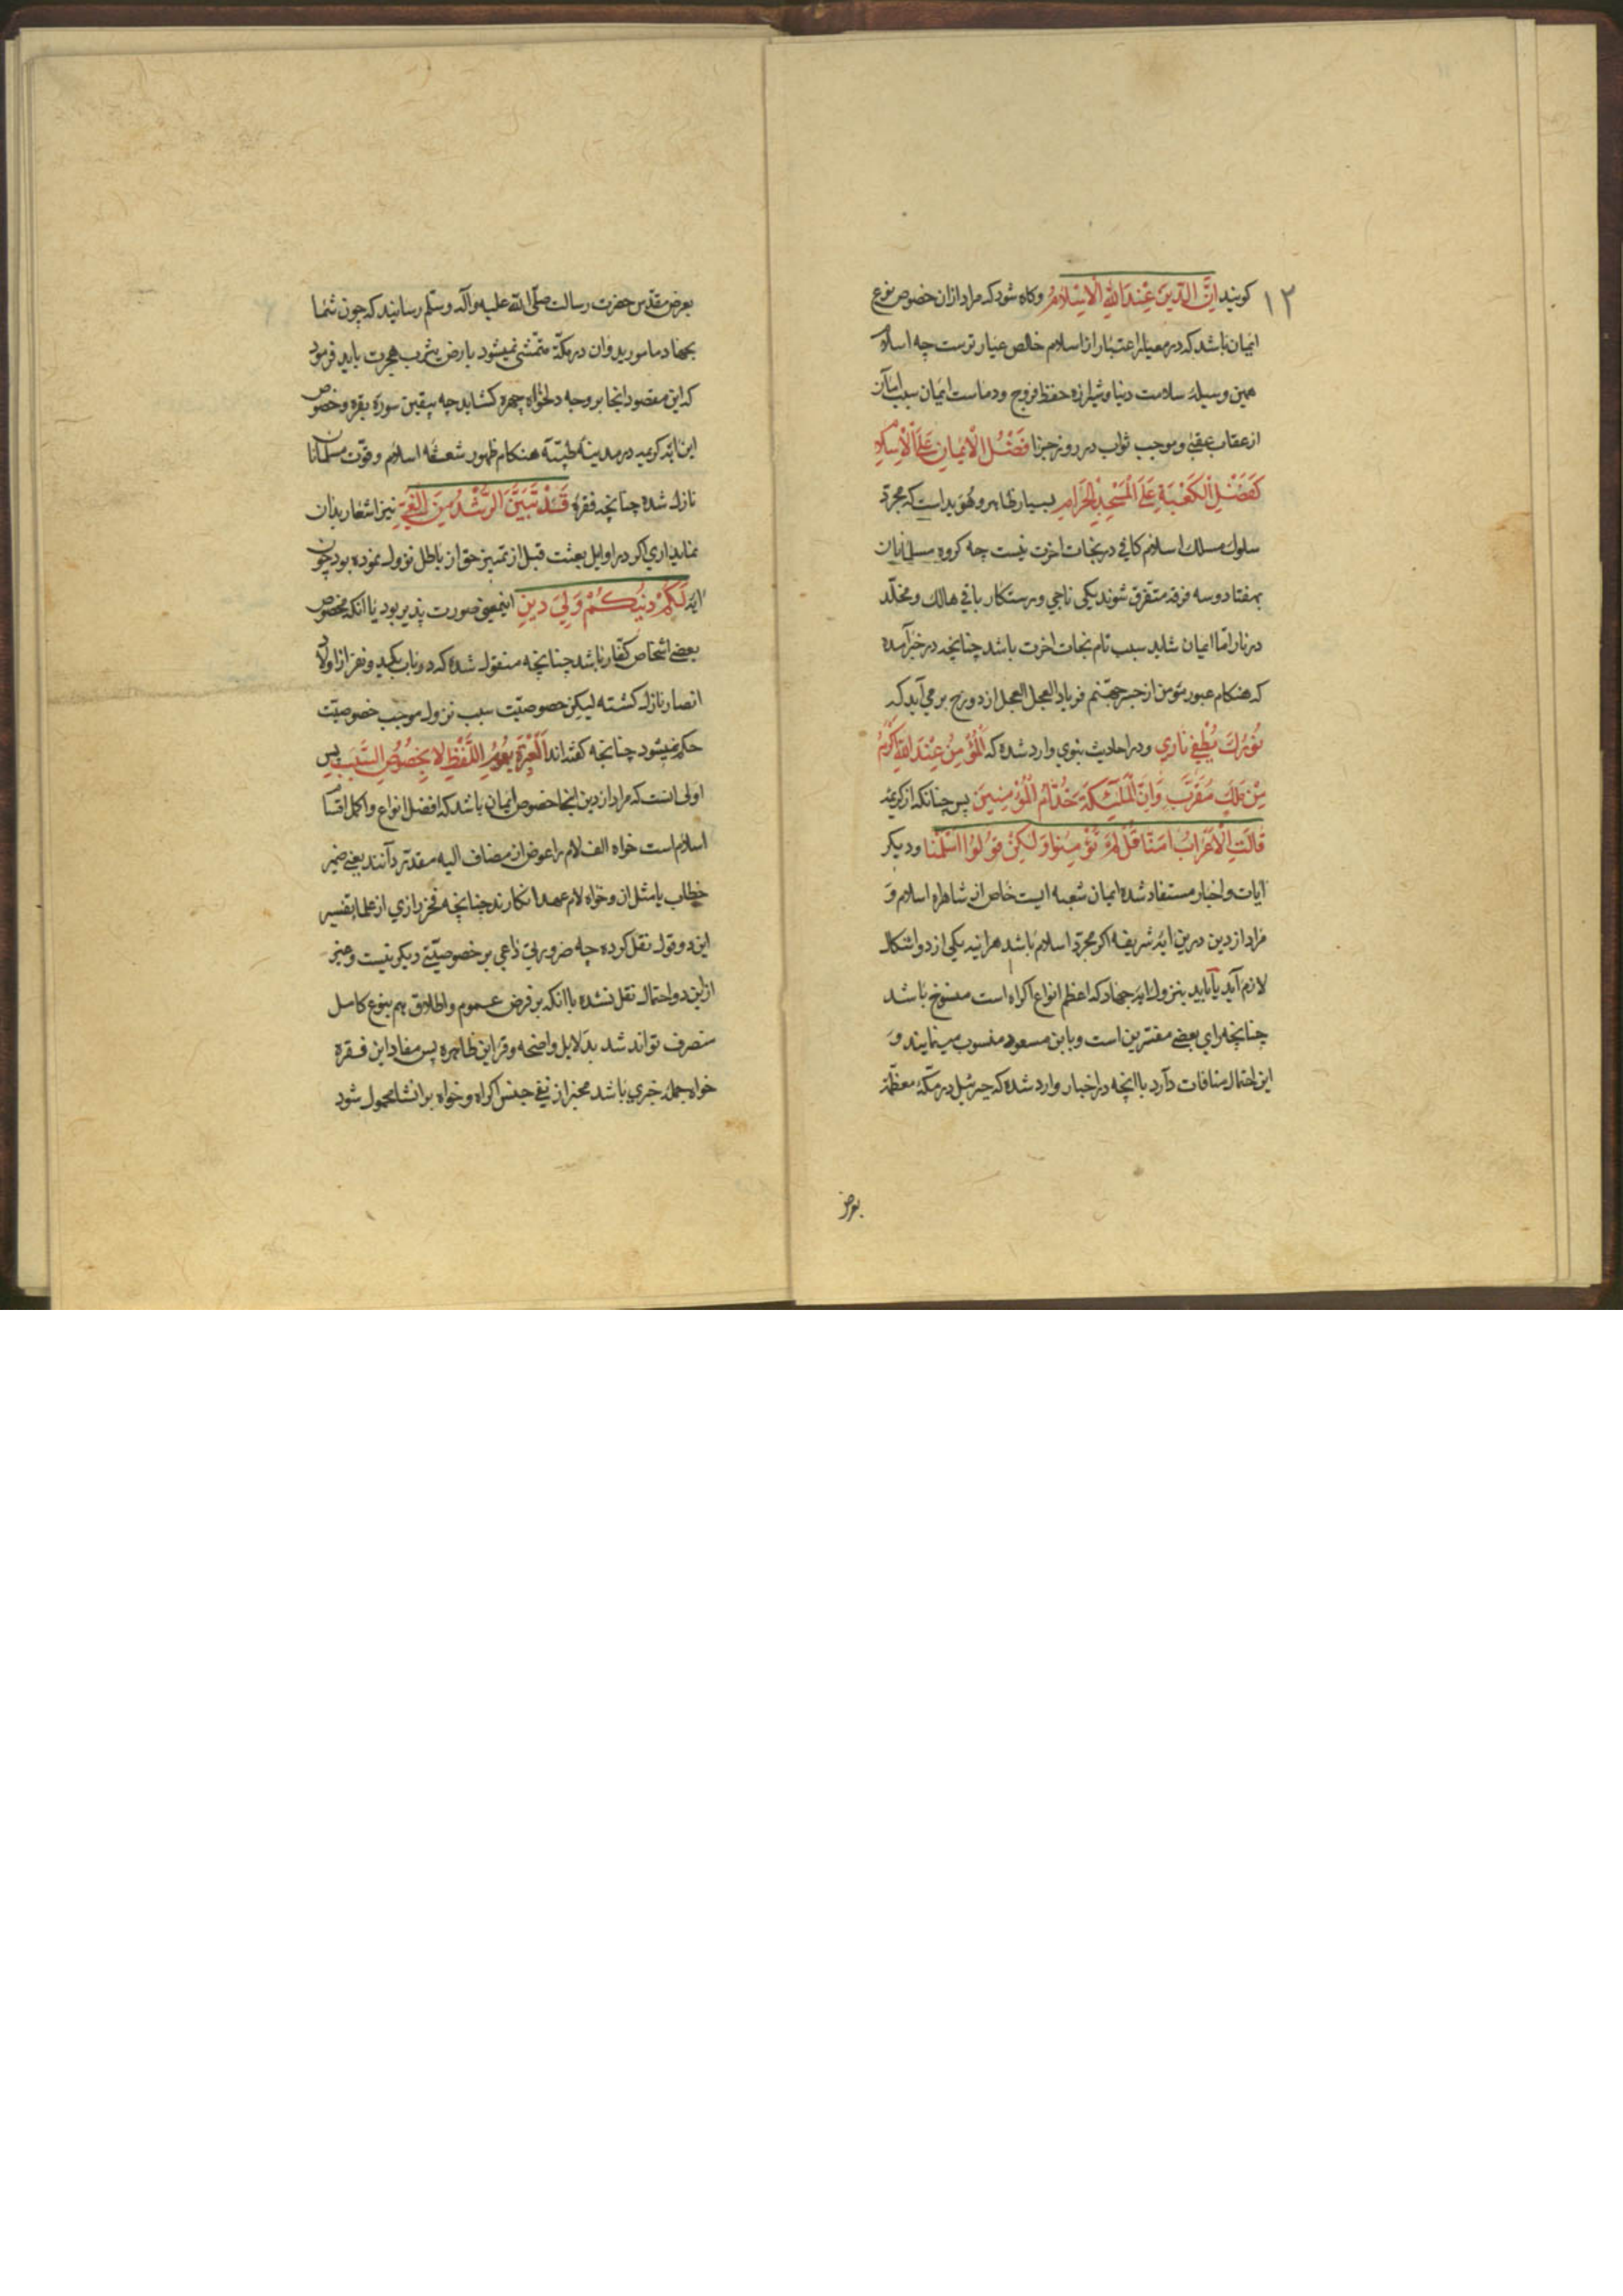 ۱۲
کویند اِنَّ الدّینَ عِنْدَ اللّهِ الْاِسْلامُ وکاه شود که مراد ازان خصوص نوع
ایمان باشد که در معیار اعتبار از اسلام خالص عیار ترست چه اسلام
همین وسیلهٔ سلامت دنیا و شیرازه حفظ فروج و دماست ایمان سبب امان
از عقاب عقبی و موجب ثواب در روز جزا فَضْلُ الْایمانِ عَلَی الْاِسْلامِ
کَفَضْلِ الْکَعْبَةِ عَلَی الْمَسْجِدِ الْحَرامِ بسیار ظاهر و هویداست که مجرّد
سلوک مسلک اسلام کافی در نجات اخرت نیست چه کروه مسلمانان
بهفتاد و سه فرقه متفرق شوند یکی ناجی و رستکار باقی هالک و مخلّد
در نار امّا ایمان شاید سبب تام نجات اخرت باشد چنانچه در خبر آمده
که هنکام عبور مؤمن از جسر جهنم فریاد العجل العجل از دوزخ بر می آید که
نُورُکَ یُطْفِی نارِی ودر احادیث نبوی وارد شده که اَلْمُؤْمِنُ عِنْدَ اللّهِ اَکْرَمُ
مِنْ مَلَکٍ مُقَرَّبٍ وَاِنَّ الْمَلٰئِکَةَ خُدّامُ الْمُؤْمِنینَ پس چنانکه از کریمهٔ
قالَتِ الْاَعْرابُ امَنّا قُلْ لَمْ تُؤْمِنُوا وَلٰکِنْ قُولُوا اَسْلَمْنا ودیکر
ایات و اخبار مستفاد شده ایمان شعبه ایست خاص از شاهراه اسلام وَ
مراد از دین درین ایهٔ شریفه اکر مجرّد اسلام باشد هراینه یکی از دو اشکال
لازم آید یا باید بنزول ایهٔ جهاد که اعظم انواع اکراه است منسوخ باشد
چنانچه رای بعضی مفسّرین است و با بن مسعود منسوب مینمایند وَ
این احتمال منافات دارد با انچه در اخبار وارد شده که جبرئیل در مکّهٔ معظّمه
بعرض
بعرض مقدّس حضرت رسالت صلّی اللّه علیه وآله وسلّم رسانید که چون شما
بجهاد مامورید وان در مکّه متمشّی نمیشود بارض یثرب هجرت باید فرمود
که این مقصود انجا بر وجه دلخواه چهره کشاید چه بیقین سورهٔ بقره و خصوص
این ایهٔ کریمه در مدینهٔ طیّبه هنکام ظهور شعشعه اسلام وقوّت مسلمانان
نازل شده چنانچه فقرهٔ قَدْ تَبَیَّنَ الرُّشْدُ مِنَ الْغَیِّ نیز اشعار بدان
نماید اری اکر در اوایل بعثت قبل از تمییز حق از باطل نزول نموده بود چون
ایهٔ لَکُمْ دینُکُمْ وَلِیَ دینِ اینمعنی صورت پذیر بود یا انکه مخصوص
بعضی اشخاص کفّار باشد چنانچه منقول شده که در باب یکدو نفر از اولاد
انصار نازل کشته لیکن خصوصیّت سبب نزول موجب خصوصیّت
حکم نمیشود چنانچه کفته اند اَلْعِبْرَةُ بِعُمُومِ اللَّفْظِ لا بِخُصُوصِ السَّبَبِ پس
اولی انست که مراد از دین انجا خصوص ایمان باشد که افضل انواع و اکمل اقسام
اسلام است خواه الف لام را عوض از مضاف الیه مقدّر دانند یعنی ضمیر
خطاب یا مثل ان وخواه لام عهد انکارند چنانچه فخر رازی از علما بتفسیر
این دو قول نقل کرده چه ضرورتی داعی بر خصوصیّتی دیکر نیست وغیر
از این دو احتمال نقل نشده با انکه بر فرض عموم و اطلاق هم بنوع کامل
منصرف تواند شد بدلایل واضحه وقراین ظاهره پس مفاد این فقره
خواه جملهٔ خبری باشد مخبر از نفی جنس اکراه وخواه بر انشا محمول شود